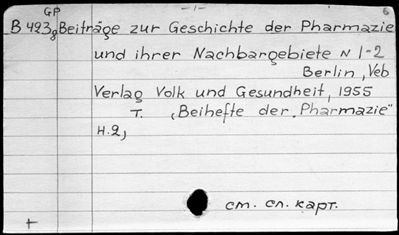 GP -1- 6
B 423g Beiträge zur Geschichte der Pharmazie
und ihrer Nachbargebiete N 1-2
Berlin, Veb
Verlag Volk und Gesundheit, 1955
T. „Beihefte der „Pharmazie"
H.2,
см. сл. карт.
+